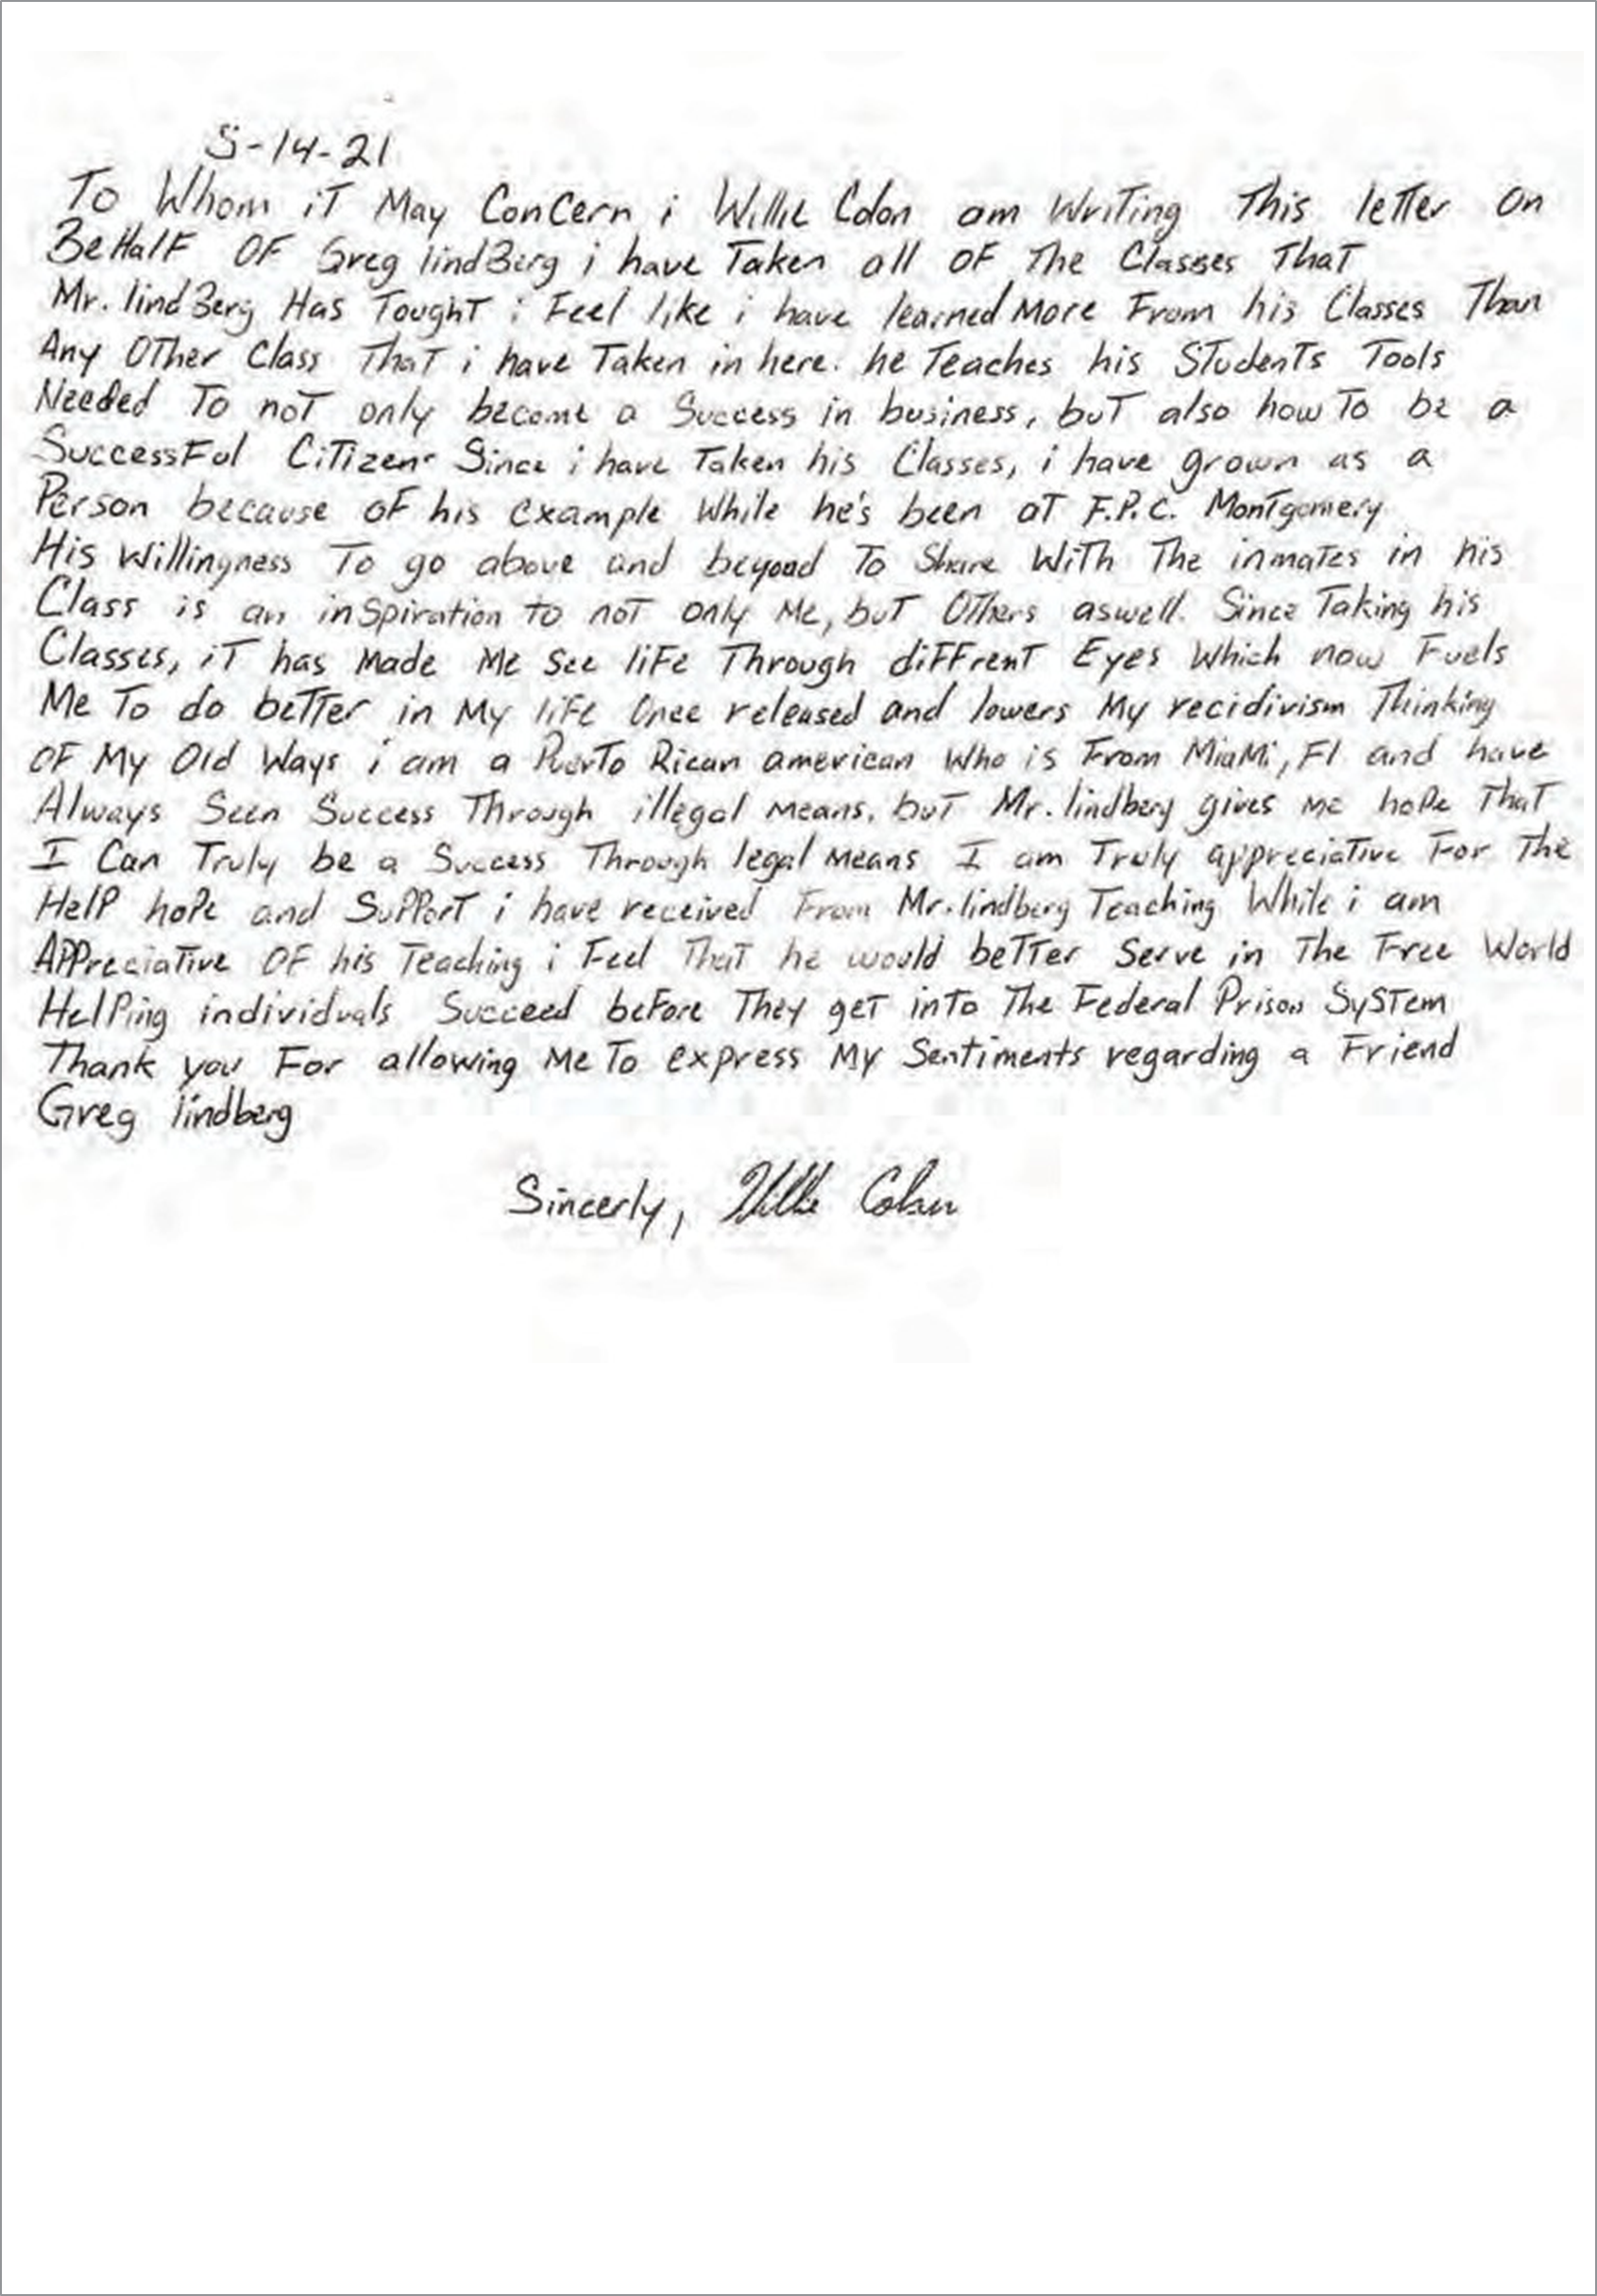 5-14-21
To Whom iT May ConCern i Willie Colon am WriTing This leTTer On
BeHalF OF Greg lindBerg i have Taken all OF The Classes ThaT
Mr. lindBerg Has ToughT i Feel like i have learned More From his Classes Than
Any OTher Class ThaT i have Taken in here. he Teaches his STudenTs Tools
Needed To noT only become a Success in business, buT also how To be a
SuccessFul CiTizen. Since i have Taken his Classes, i have grown as a
Person because oF his example While he's been aT F.P.C. MonTgomery
His Willingness To go above and beyond To Share WiTh The inmaTes in his
Class is an inSpiration to noT only Me, buT OThers aswell. Since Taking his
Classes, iT has Made Me See liFe Through diFFrenT Eyes Which now Fuels
Me To do beTTer in My liFe Once released and lowers My recidivism Thinking
OF My Old Ways i am a PuerTo Rican american Who is From MiaMi, Fl and have
Always Seen Success Through illegal Means, buT Mr. lindberg gives me hoPe ThaT
I Can Truly be a Success Through legal Means I am Truly appreciaTive For The
HelP hoPe and SuPPorT i have received From Mr. lindberg Teaching While i am
APPreciaTive OF his Teaching i Feel ThaT he would beTTer Serve in The Free World
HelPing individuals Succeed beFore They geT inTo The Federal Prison SySTem
Thank you For allowing Me To express My Sentiments regarding a Friend
Greg lindberg
Sincerly, Willie Colon